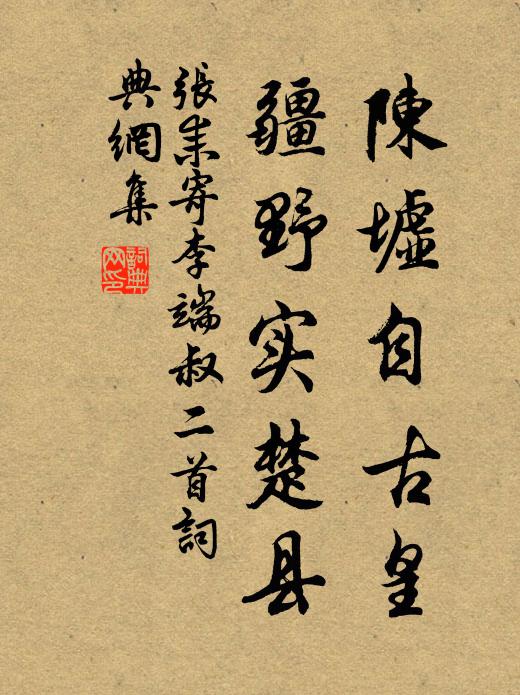 陳墟自古皇
疆野实楚县
張耒寄李端叔二首詞
典網集
詞典網印